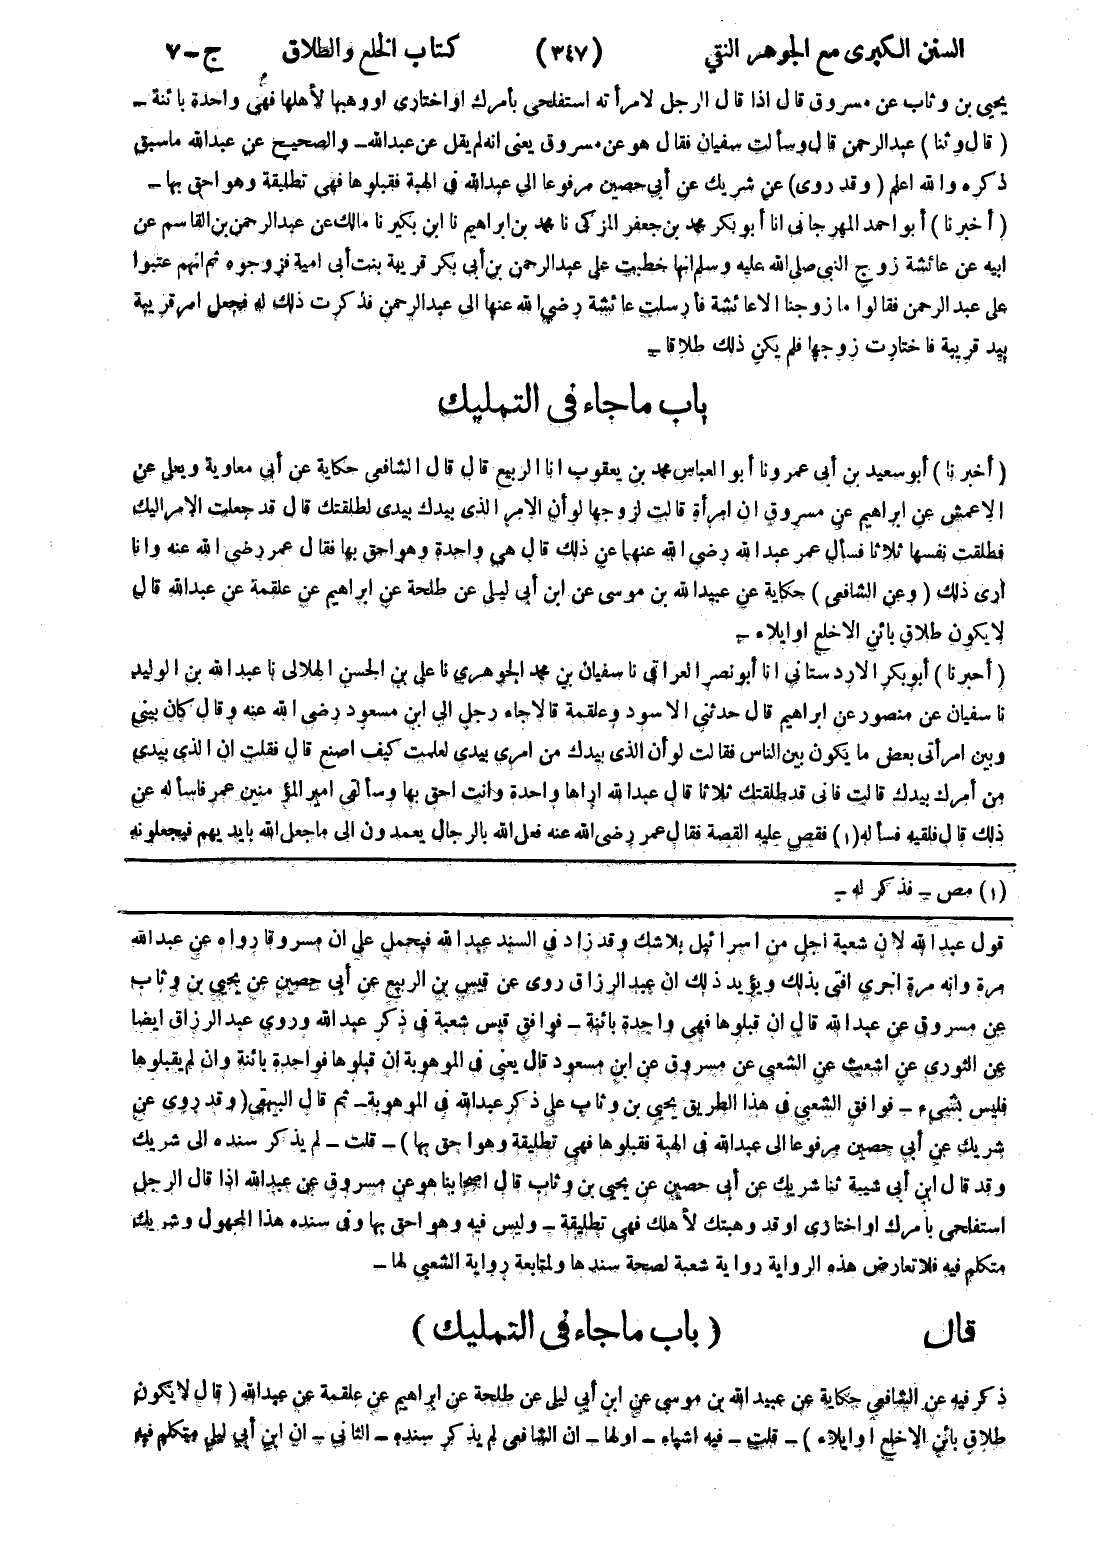 السنن الكبرى مع الجوهر النقي (٣٤٧) كتاب الخلع والطلاق ج-٧
يحيى بن وثاب عن مسروق قال اذا قال الرجل لامرأته استفلحى بأمرك او اختارى او وهبها لأهلها فهى واحدة بائنة -
( قال وثنا ) عبدالرحمن قال وسألت سفيان فقال هو عن مسروق يعنى انه لم يقل عن عبدالله - والصحيح عن عبدالله ماسبق
ذكره والله اعلم ( وقد روى) عن شريك عن أبى حصين مرفوعا الى عبدالله فى الهبة فقبلوها فهى تطليقة وهو احق بها -
( أخبرنا ) أبو احمد المهرجانى انا أبو بكر محمد بن جعفر المزكى نا محمد بن ابراهيم نا ابن بكير نا مالك عن عبدالرحمن بن القاسم عن
ابيه عن عائشة زوج النبى صلى الله عليه وسلم انها خطبت على عبدالرحمن بن أبى بكر قريبة بنت أبى امية فزوجوه ثم انهم عتبوا
على عبد الرحمن فقالوا ما زوجنا الا عائشة فأرسلت عائشة رضى الله عنها الى عبدالرحمن فذكرت ذلك له فجعل امر قريبة
بيد قريبة فاختارت زوجها فلم يكن ذلك طلاقا -
باب ماجاء فى التمليك
( أخبرنا ) أبو سعيد بن أبى عمرو نا أبو العباس محمد بن يعقوب انا الربيع قال قال الشافعى حكاية عن أبى معاوية ويعلى عن
الاعمش عن ابراهيم عن مسروق ان امرأة قالت لزوجها لو أن الامر الذى بيدك بيدى لطلقتك قال قد جعلت الامر اليك
فطلقت نفسها ثلاثا فسأل عمر عبدالله رضى الله عنهما عن ذلك قال هى واحدة وهو احق بها فقال عمر رضى الله عنه وانا
أرى ذلك ( وعن الشافعى ) حكاية عن عبيدالله بن موسى عن ابن أبى ليلى عن طلحة عن ابراهيم عن علقمة عن عبدالله قال
لا يكون طلاق بائن الا خلع او ايلاء -
( أخبرنا ) أبو بكر الاردستانى انا أبو نصر العراقى نا سفيان بن محمد الجوهري نا على بن الحسن الهلالى نا عبدالله بن الوليد
نا سفيان عن منصور عن ابراهيم قال حدثنى الاسود وعلقمة قالا جاء رجل الى ابن مسعود رضى الله عنه وقال كان بينى
وبين امرأتى بعض ما يكون بين الناس فقالت لو أن الذى بيدك من امرى بيدى لعلمت كيف اصنع قال فقلت ان الذى بيدى
من أمرك بيدك قالت فانى قد طلقتك ثلاثا قال عبدالله اراها واحدة وانت احق بها وسألقى امير المؤمنين عمر فاسأله عن
ذلك قال فلقيه فسأله(١) فقص عليه القصة فقال عمر رضى الله عنه فعل الله بالرجال يعمدون الى ماجعل الله بايديهم فيجعلونه
(١) مص - فذكر له -
قول عبدالله لان شعبة اجل من اسرائيل بلاشك وقد زاد فى السند عبدالله فيحمل على ان مسروقا رواه عن عبدالله
مرة وانه مرة اخرى افتى بذلك ويؤيد ذلك ان عبدالرزاق روى عن قيس بن الربيع عن أبى حصين عن يحيى بن وثاب
عن مسروق عن عبدالله قال ان قبلوها فهى واحدة بائنة - فوافق قيس شعبة فى ذكر عبدالله وروى عبدالرزاق ايضا
عن الثورى عن اشعث عن الشعبى عن مسروق عن ابن مسعود قال يعنى فى الموهوبة ان قبلوها فواحدة بائنة وان لم يقبلوها
فليس بشىء - فوافق الشعبى فى هذا الطريق يحيى بن وثاب على ذكر عبدالله فى الموهوبة - ثم قال البيهقى( وقد روى عن
شريك عن أبى حصين مرفوعا الى عبدالله فى الهبة فقبلوها فهى تطليقة وهو احق بها ) - قلت - لم يذكر سنده الى شريك
وقد قال ابن أبى شيبة ثنا شريك عن أبى حصين عن يحيى بن وثاب قال اصحابنا هو عن مسروق عن عبدالله اذا قال الرجل
استفلحى بامرك او اختارى او قد وهبتك لأهلك فهى تطليقة - وليس فيه وهو احق بها وفى سنده هذا المجهول وشريك
متكلم فيه فلا تعارض هذه الرواية رواية شعبة لصحة سندها ولمتابعة رواية الشعبى لها -
قال ( باب ماجاء فى التمليك )
ذكر فيه عن الشافعى حكاية عن عبيدالله بن موسى عن ابن أبى ليلى عن طلحة عن ابراهيم عن علقمة عن عبدالله ( قال لا يكون
طلاق بائن الا خلع او ايلاء ) - قلت - فيه اشياء - اولها - ان الشافعى لم يذكر سنده - الثانى - ان ابن أبى ليلى متكلم فيه